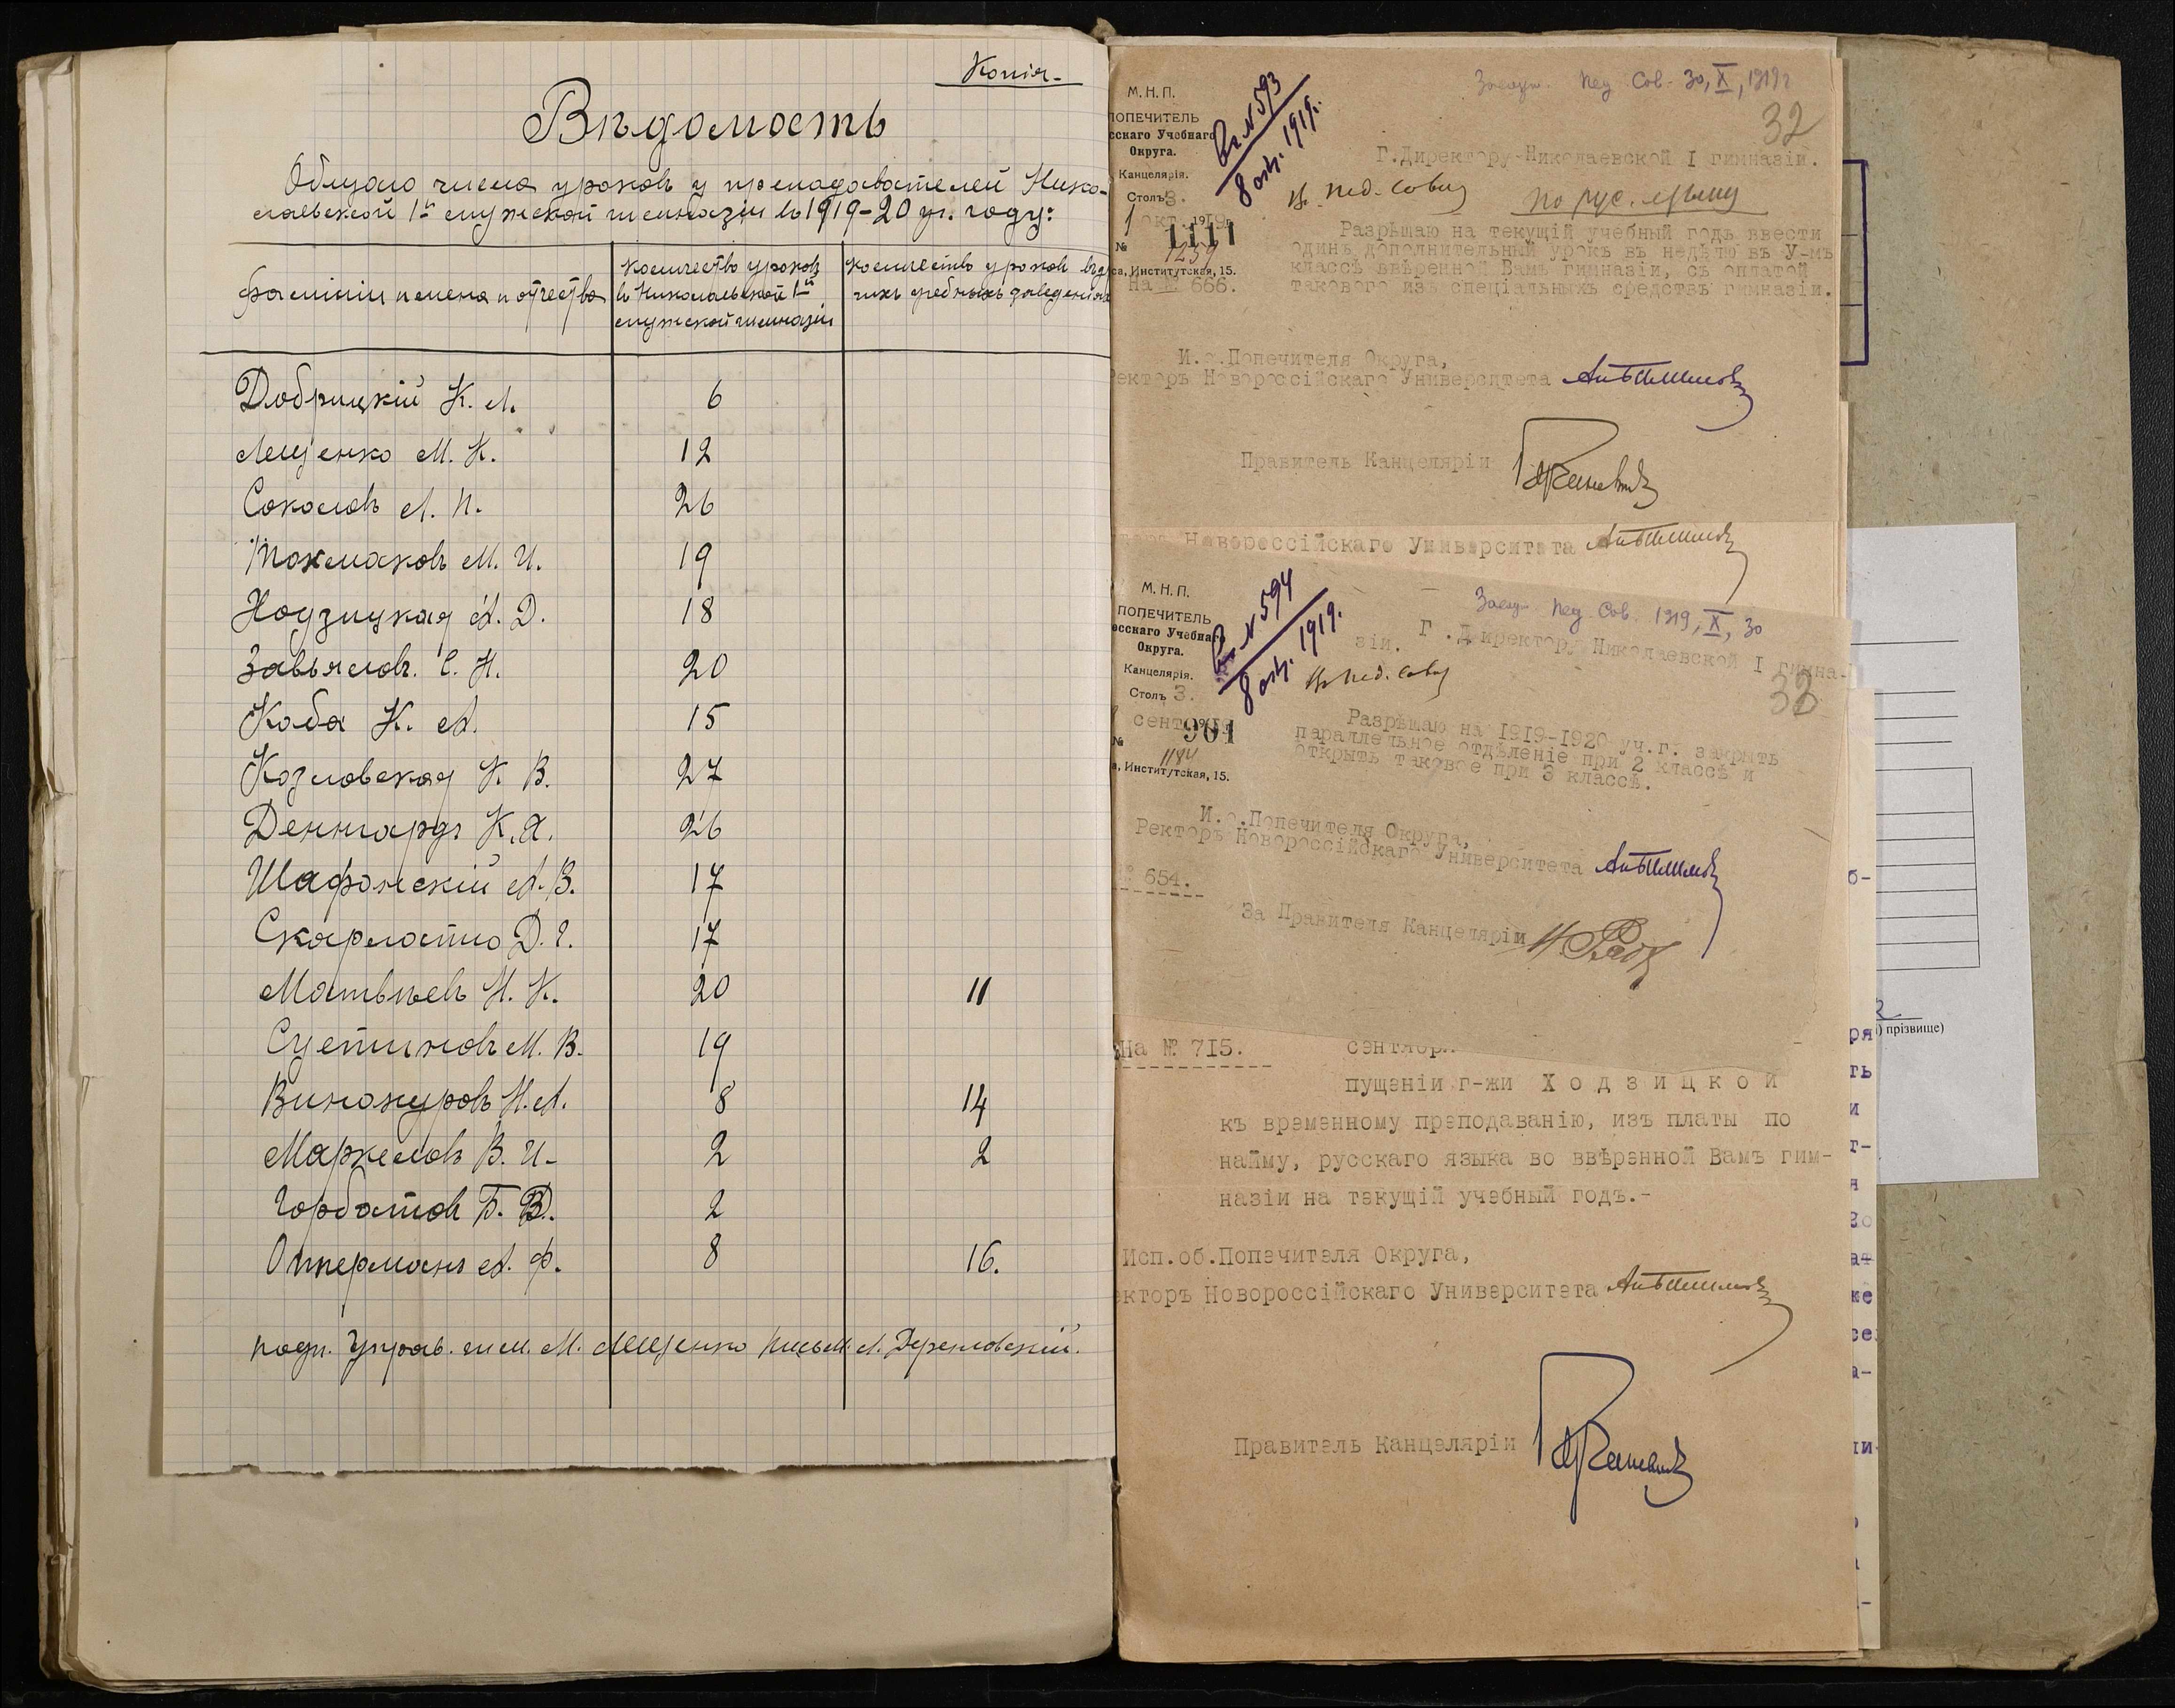 Копія.
Вѣдомость
Общаго числа уроковъ у преподавателей Нико-
лаевской 1й мужской гимназіи въ 1919-20 уч. году:
Фамиліи имена и отчества
Количество уроковъ
въ Николаевской 1й
мужской гимназіи
Количество уроковъ въ дру
гихъ учебныхъ заведеніях
Добрицкій К. Л. 6
Лещенко М. К. 12
Соколовъ А. П. 26
Токмаковъ М. И. 19
Ходзицкая А. Д. 18
Завьяловъ С. Н. 20
Каба К. А. 15
Козловская К. В. 27
Деннгардъ К. Х. 26
Шафонскій А. В. 17
Скарлатто Д. Г. 17
Матвѣевъ Н. К. 20 11
Суетиновъ М. В. 19
Винокуровъ Н. А. 8 14
Маркеловъ В. И. 2 2
Горбатовъ Б. В. 2
Опперманъ А. Ф. 8 16.
подп. Управ. гим. М. Лещенко Письм. А.
Пед. Сов. 30, X, 1919г
32
М. Н. П.
ПОПЕЧИТЕЛЬ
сскаго Учебнаго
Округа.
Канцелярія.
Столъ 3.
1 окт. 1919г.
№ 1111
1239
са, Институтская, 15.
На № 666.
Вх. № 593
8 окт. 1919г.
Г.Директору Николаевской I гимназіи.
Въ пед. совѣтъ
По рус. языку
Разрѣшаю на текущій учебный годъ ввести
одинъ дополнительный урокъ въ недѣлю въ У-мъ
классѣ ввѣренной Вамъ гимназіи, съ оплатой
такового изъ спеціальныхъ средствъ гимназіи.
И.о.Попечителя Округа,
Ректоръ Новороссійскаго Университета
Правитель Канцеляріи
Новороссійскаго Университета
М. Н. П.
ПОПЕЧИТЕЛЬ
есскаго Учебнаго
Округа.
Канцелярія.
Столъ 3.
сент 1919
№ 901
1184
а, Институтская, 15.
Вх. № 594
8 окт. 1919г.
Пед. Сов. 1919, X, 30
Г.Директору Николаевской I гимна-
зіи.
33
Въ пед. совѣтъ
Разрѣшаю на 1919-1920 уч.г. закрыть
параллельное отдѣленіе при 2 классѣ и
открыть таковое при 3 классѣ.
И.о.Попечителя Округа,
Ректоръ Новороссійскаго Университета
№ 654.
За Правителя Канцеляріи
На № 715.
сентября
пущеніи г-жи Ходзицкой
къ временному преподаванію, изъ платы по
найму, русскаго языка во ввѣренной Вамъ гим-
назіи на текущій учебный годъ.-
Исп.об.Попечителя Округа,
екторъ Новороссійскаго Университета
Правитель Канцеляріи
прізвище)